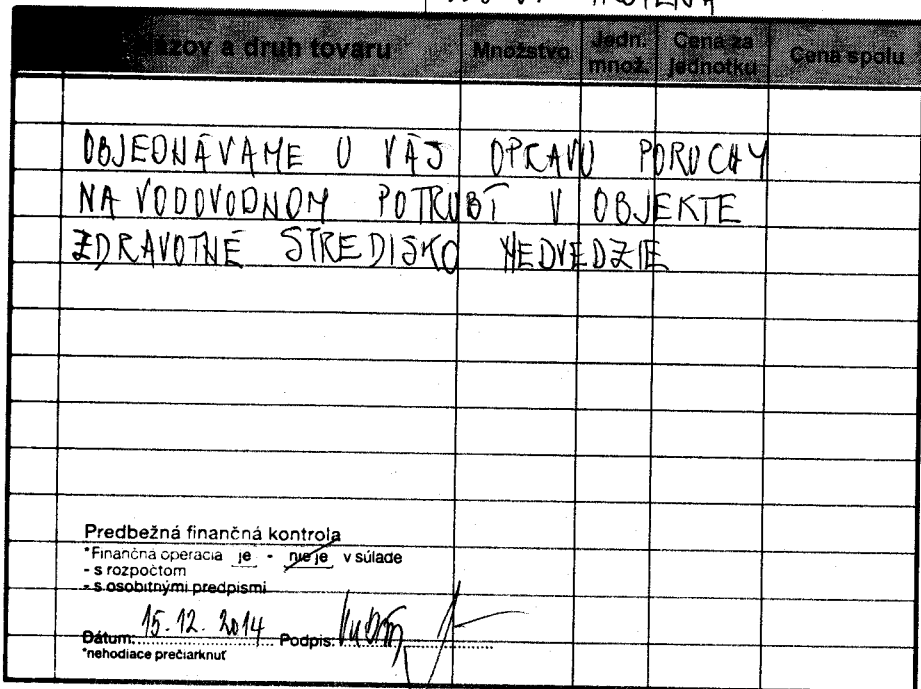 Názov a druh tovaru Množstvo Jedn. množ. Cena za jednotku Cena spolu
OBJEDNÁVAME U VÁS OPRAVU PORUCHY
NA VODOVODNOM POTRUBÍ V OBJEKTE
ZDRAVOTNÉ STREDISKO MEDVEDZIE
Predbežná finančná kontrola
*Finančná operácia je - nie je v súlade
- s rozpočtom
- s osobitnými predpismi
Dátum: 15.12.2014 Podpis:
*nehodiace prečiarknuť